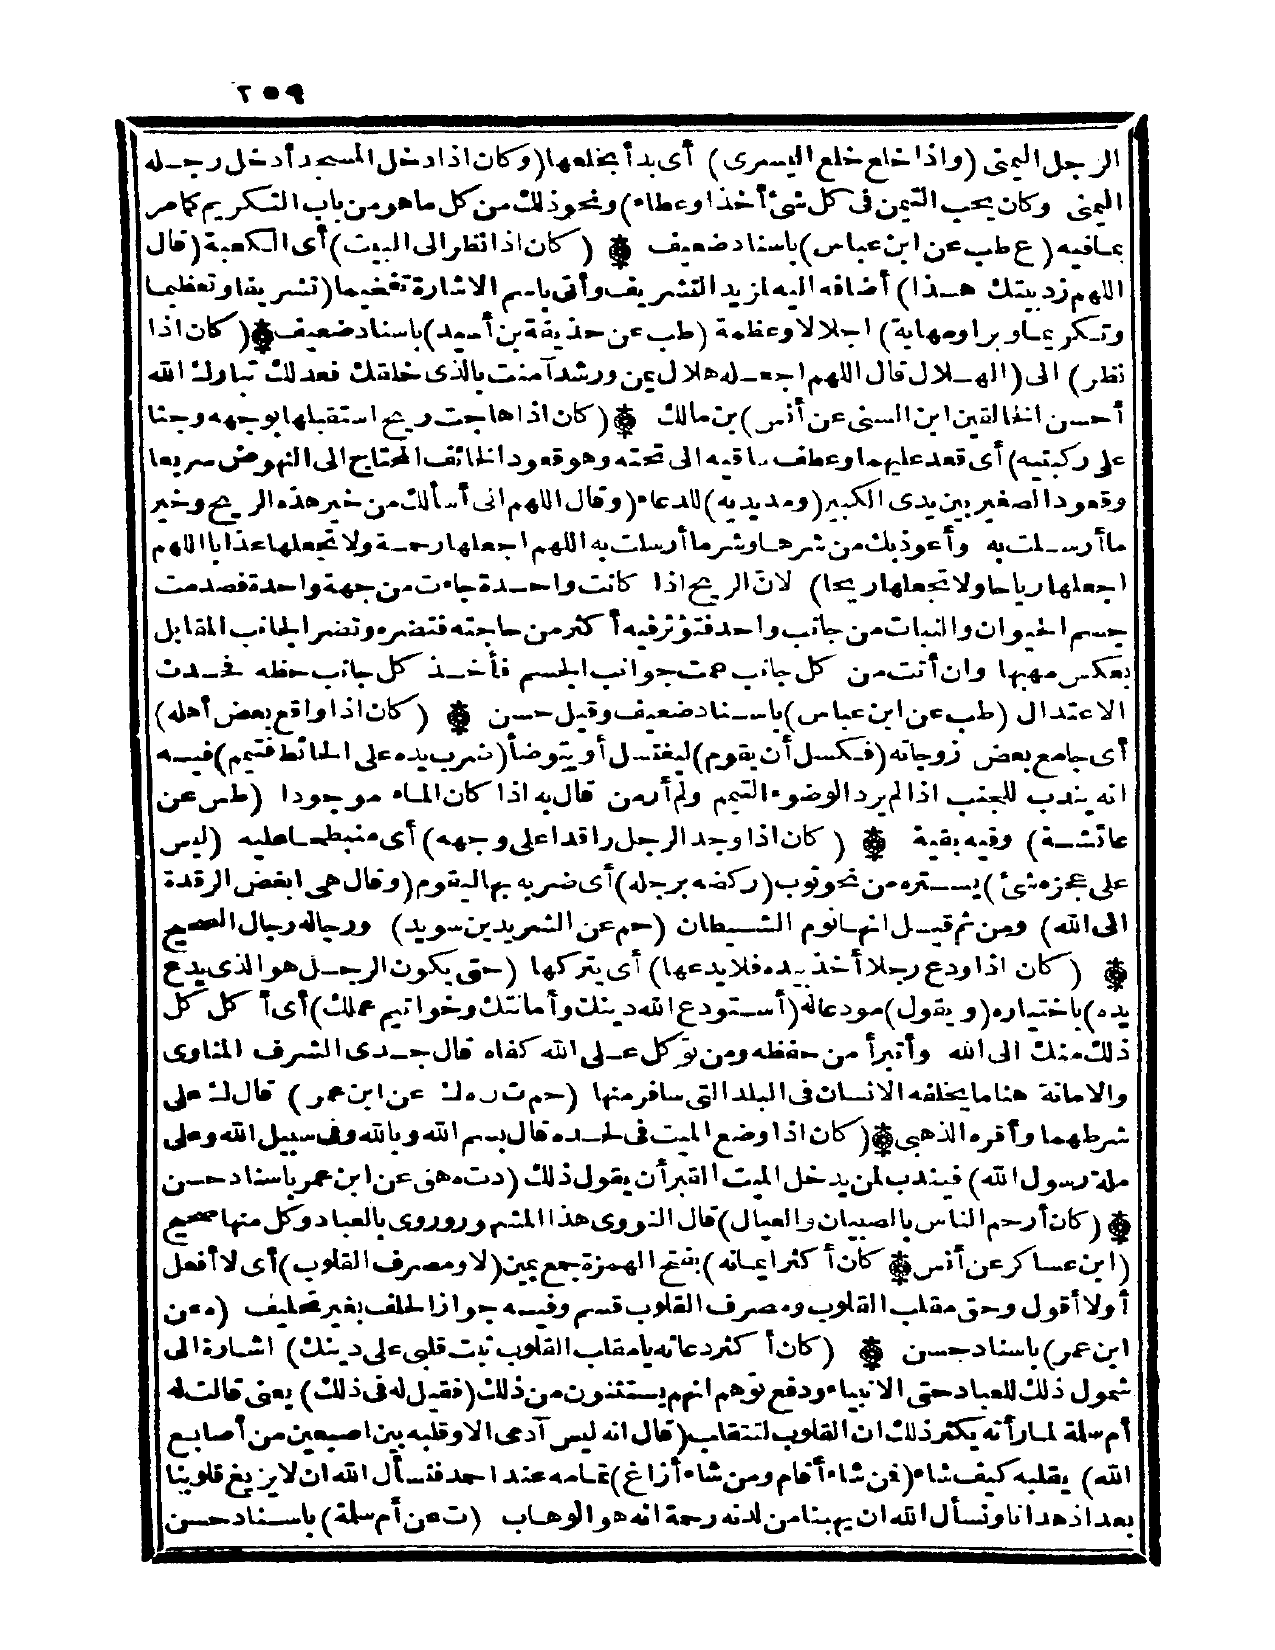 ٢٥٩
الرجل اليمنى (واذا خلع خلع اليسرى) أى بدأ بخلعها (وكان اذا دخل المسجد أدخل رجله
اليمنى وكان يحب التيمن فى كل شئ أخذا وعطاء) ونحو ذلك من كل ما هو من باب التكريم كما مر
بما فيه (ع طب عن ابن عباس) باسناد ضعيف ۞ (كان اذا نظر الى البيت) أى الكعبة (قال
اللهم زد بيتك هذا) أضافه اليه لمزيد التشريف وأتى باسم الاشارة تفخيما (تشريفا وتعظيما
وتكريما وبرا ومهابة) اجلالا وعظمة (طب عن حذيفة بن أسيد) باسناد ضعيف ۞ (كان اذا
نظر) الى (الهلال قال اللهم اجعله هلال يمن ورشد آمنت بالذى خلقك فعدلك تبارك الله
أحسن الخالقين ابن السنى عن أنس) بن مالك ۞ (كان اذا هاجت ريح استقبلها بوجهه وجثا
على ركبتيه) أى قعد عليهما وعطف ساقيه الى تحته وهو قعود الخائف المحتاج الى النهوض سريعا
وقعود الصغير بين يدى الكبير (ومد يديه) للدعاء (وقال اللهم انى أسألك من خير هذه الريح وخير
ما أرسلت به وأعوذ بك من شرها وشر ما أرسلت به اللهم اجعلها رحمة ولا تجعلها عذابا اللهم
اجعلها رياحا ولا تجعلها ريحا) لانّ الريح اذا كانت واحدة جاءت من جهة واحدة فصدمت
جسم الحيوان والنبات من جانب واحد فتؤثر فيه أكثر من حاجته فتضره وتضر الجانب المقابل
بعكس مهبها وان أتت من كل جانب عمت جوانب الجسم فأخذ كل جانب حظه فحدث
الاعتدال (طب عن ابن عباس) باسناد ضعيف وقيل حسن ۞ (كان اذا واقع بعض أهله)
أى جامع بعض زوجاته (فكسل أن يقوم) ليغتسل أو يتوضأ (ضرب يده على الحائط فتيمم) فيه
انه يندب للجنب اذا لم يرد الوضوء التيمم ولم أر من قال به اذا كان الماء موجودا (طس عن
عائشة) وفيه بقية ۞ (كان اذا وجد الرجل راقدا على وجهه) أى منبطحا عليه (ليس
على عجزه شئ) يستره من نحو ثوب (ركضه برجله) أى ضربه بها ليقوم (وقال هى ابغض الرقدة
الى الله) ومن ثم قيل انها نوم الشيطان (حم عن الشريد بن سويد) ورجاله رجال الصحيح
۞ (كان اذا ودع رجلا أخذ بيده فلا يدعها) أى يتركها (حتى يكون الرجل هو الذى يدع
يده) باختياره (ويقول) مودعا له (أستودع الله دينك وأمانتك وخواتيم عملك) أى أكل كل
ذلك منك الى الله وأتبرأ من حفظه ومن توكل على الله كفاه قال جدى الشرف المناوى
والامانة هنا ما يخلفه الانسان فى البلد التى سافر منها (حم ت ن ه ك عن ابن عمر) قال ك على
شرطهما وأقره الذهبى ۞ (كان اذا وضع الميت فى لحده قال بسم الله وبالله وفى سبيل الله وعلى
ملة رسول الله) فيندب لمن يدخل الميت القبر أن يقول ذلك (د ت ه هق عن ابن عمر باسناد حسن
۞ (كان أرحم الناس بالصبيان والعيال) قال النووى هذا المشهور وروى بالعباد وكل منها صحيح
(ابن عساكر عن أنس ۞ كان أكثر ايمانه) بفتح الهمزة جمع يمين (لا ومصرف القلوب) أى لا أفعل
أولا أقول وحق مقلب القلوب ومصرف القلوب قسم وفيه جواز الحلف بغير تحليف (ه عن
ابن عمر) باسناد حسن ۞ (كان أكثر دعائه يا مقلب القلوب ثبت قلبى على دينك) اشارة الى
شمول ذلك للعباد حتى الانبياء ودفع توهم انهم يستثنون من ذلك (فقيل له فى ذلك) يعنى قالت له
أم سلة لما رأته يكثر ذلك ان القلوب لتتقلب (قال انه ليس آدمى الا وقلبه بين اصبعين من أصابع
الله) يقلبه كيف شاء (فمن شاء أقام ومن شاء أزاغ) تمامه عند احمد فنسأل الله ان لا يزيغ قلوبنا
بعد اذ هدانا ونسأل الله ان يهبنا من لدنه رحمة انه هو الوهاب (ت عن أم سلة) باسناد حسن